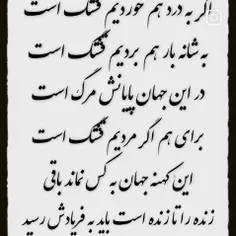 اگر به درد هم خوردیم قشنگ است
به شانه بار هم بردیم قشنگ است
در این جهان پایانش مرگ است
برای هم اگر مردیم قشنگ است
این کهنه جهان به کس نماند باقی
زنده را تا زنده است باید به فریادش رسید